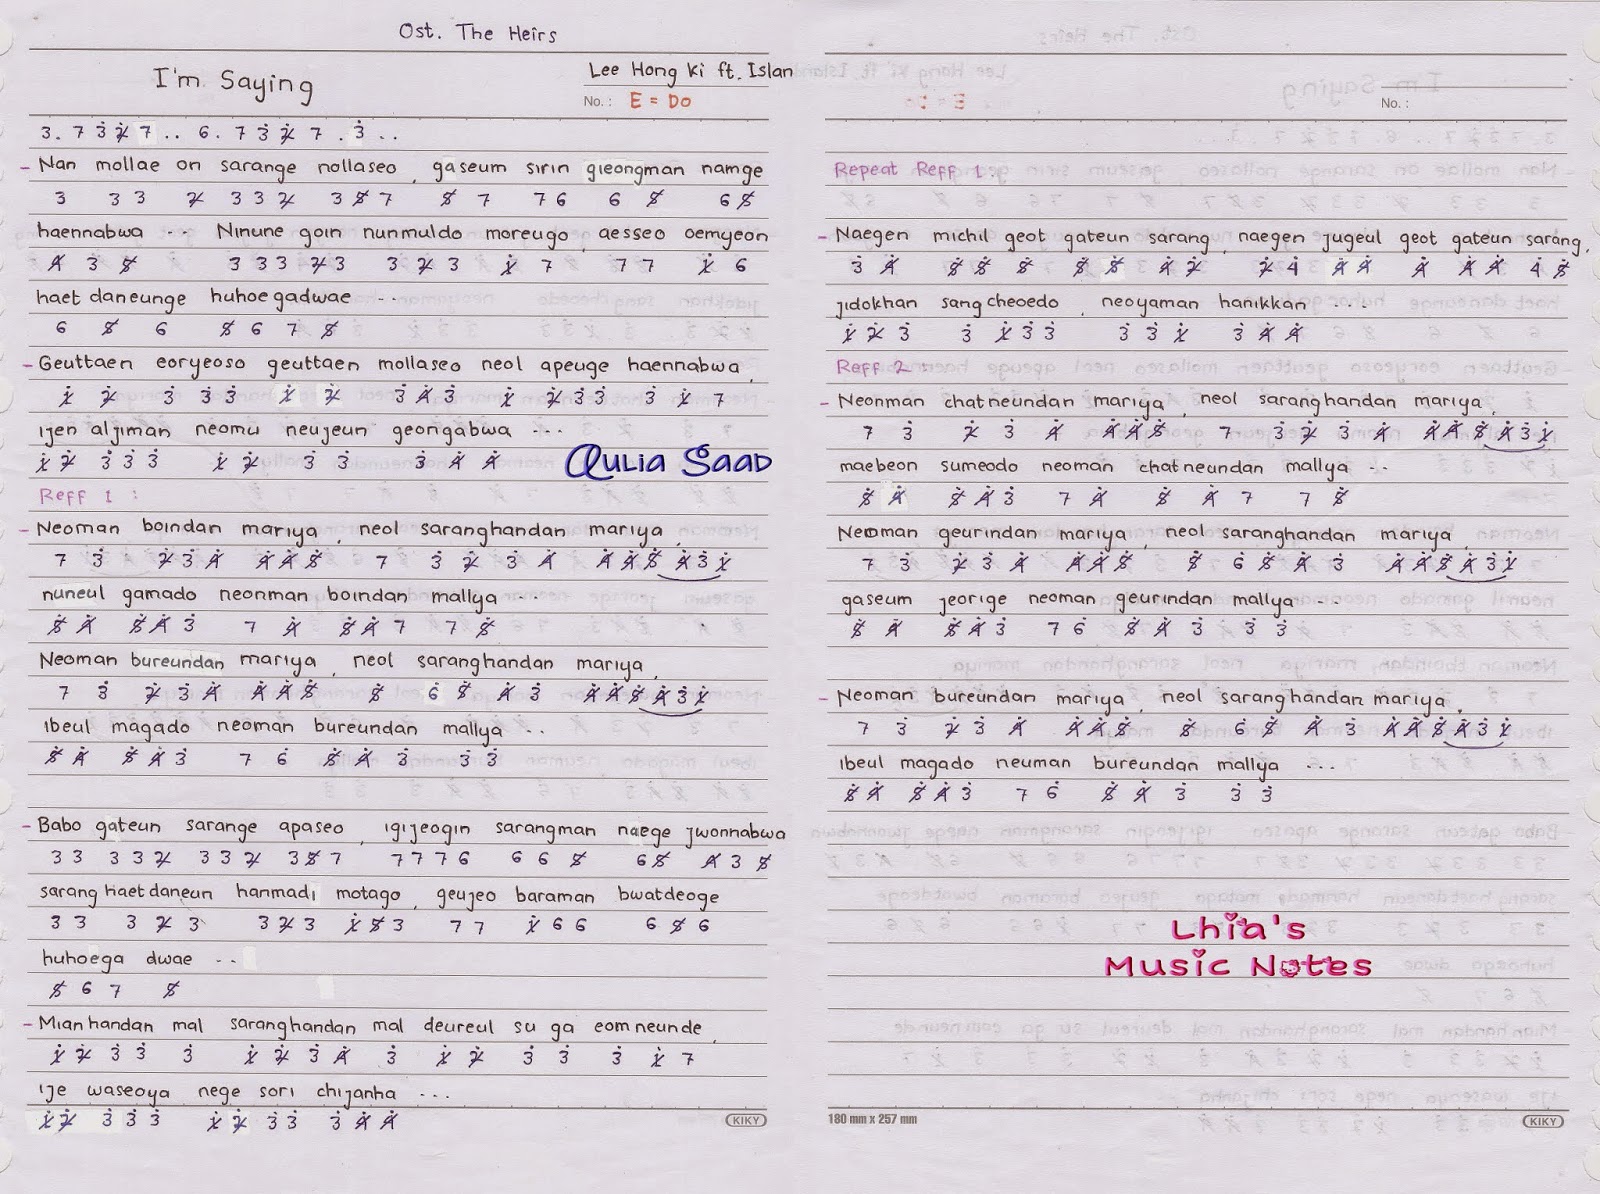 Ost. The Heirs
I'm Saying
Lee Hong Ki ft. Islan
No. : E = Do
3. 7 3 2 7 .. 6. 7 3 2 7 . 3 ..
- Nan mollae on sarange nollaseo , gaseum sirin gieongman namge
3 3 3 2 3 3 2 3 5 7 5 7 7 6 6 5 6 5
haennabwa ... Ninune goin nunmuldo moreugo , aesseo oemyeon
4 3 5 3 3 3 2 3 3 2 3 1 7 7 7 1 6
haet daneunge huhoe gadwae ...
6 5 6 5 6 7 5
- Geuttaen eoryeoso geuttaen mollaseo neol apeuge haennabwa ,
1 2 3 3 3 1 2 3 4 3 1 2 3 3 3 1 7
ijen aljiman neomu neujeun geongabwa ...
1 2 3 3 3 1 2 3 3 3 4 4
Aulia Saad
Reff 1 :
- Neoman boindan mariya , neol saranghandan mariya ,
7 3 2 3 4 4 4 5 7 3 2 3 4 4 4 5 4 3 1
nuneul gamado neonman boindan mallya ...
5 4 5 4 3 7 4 5 4 7 7 5
Neoman bureundan mariya , neol saranghandan mariya ,
7 3 2 3 4 4 4 5 5 6 5 4 3 4 4 5 4 3 1
ibeul magado neoman bureundan mallya ..
5 4 5 4 3 7 6 5 4 3 3 3
- Babo gateun sarange apaseo , igijeogin sarangman naege jwonnabwa
3 3 3 3 2 3 3 2 3 5 7 7 7 7 6 6 6 5 6 5 4 3 5
sarang haet daneun hanmadi motago , geujeo baraman bwatdeoge
3 3 3 2 3 3 2 3 1 5 3 7 7 1 6 6 6 5 6
huhoega dwae ..
5 6 7 5
- Mian handan mal saranghandan mal deureul su ga eomneunde ,
1 2 3 3 3 1 2 3 4 3 1 2 3 3 3 1 7
ije waseoya nege sori chijanha ...
1 2 3 3 3 1 2 3 3 3 4 4
KIKY
No. :
Repeat Reff 1 :
- Naegen michil geot gateun sarang , naegen jugeul geot gateun sarang ,
3 4 5 5 5 5 5 4 2 2 4 4 4 4 4 4 4 5
jidokhan sang cheoedo , neoyaman hanikkan ...
1 2 3 3 1 3 3 3 3 1 3 4 4
Reff 2 :
- Neonman chatneundan mariya , neol saranghandan mariya ,
7 3 2 3 4 4 4 5 7 3 2 3 4 4 4 5 4 3 1
maebeon sumeodo neoman chatneundan mallya ..
5 4 5 4 3 7 4 5 4 7 7 5
Neoman geurindan mariya , neol saranghandan mariya ,
7 3 2 3 4 4 4 5 5 6 5 4 3 4 4 5 4 3 1
gaseum jeorige neoman geurindan mallya ...
5 4 5 4 3 7 6 5 4 3 3 3
- Neoman bureundan mariya , neol saranghandan mariya ,
7 3 2 3 4 4 4 5 5 6 5 4 3 4 4 5 4 3 1
ibeul magado neuman bureundan mallya ...
5 4 5 4 3 7 6 5 4 3 3 3
Lhia's
Music Notes
180 mm x 257 mm
KIKY